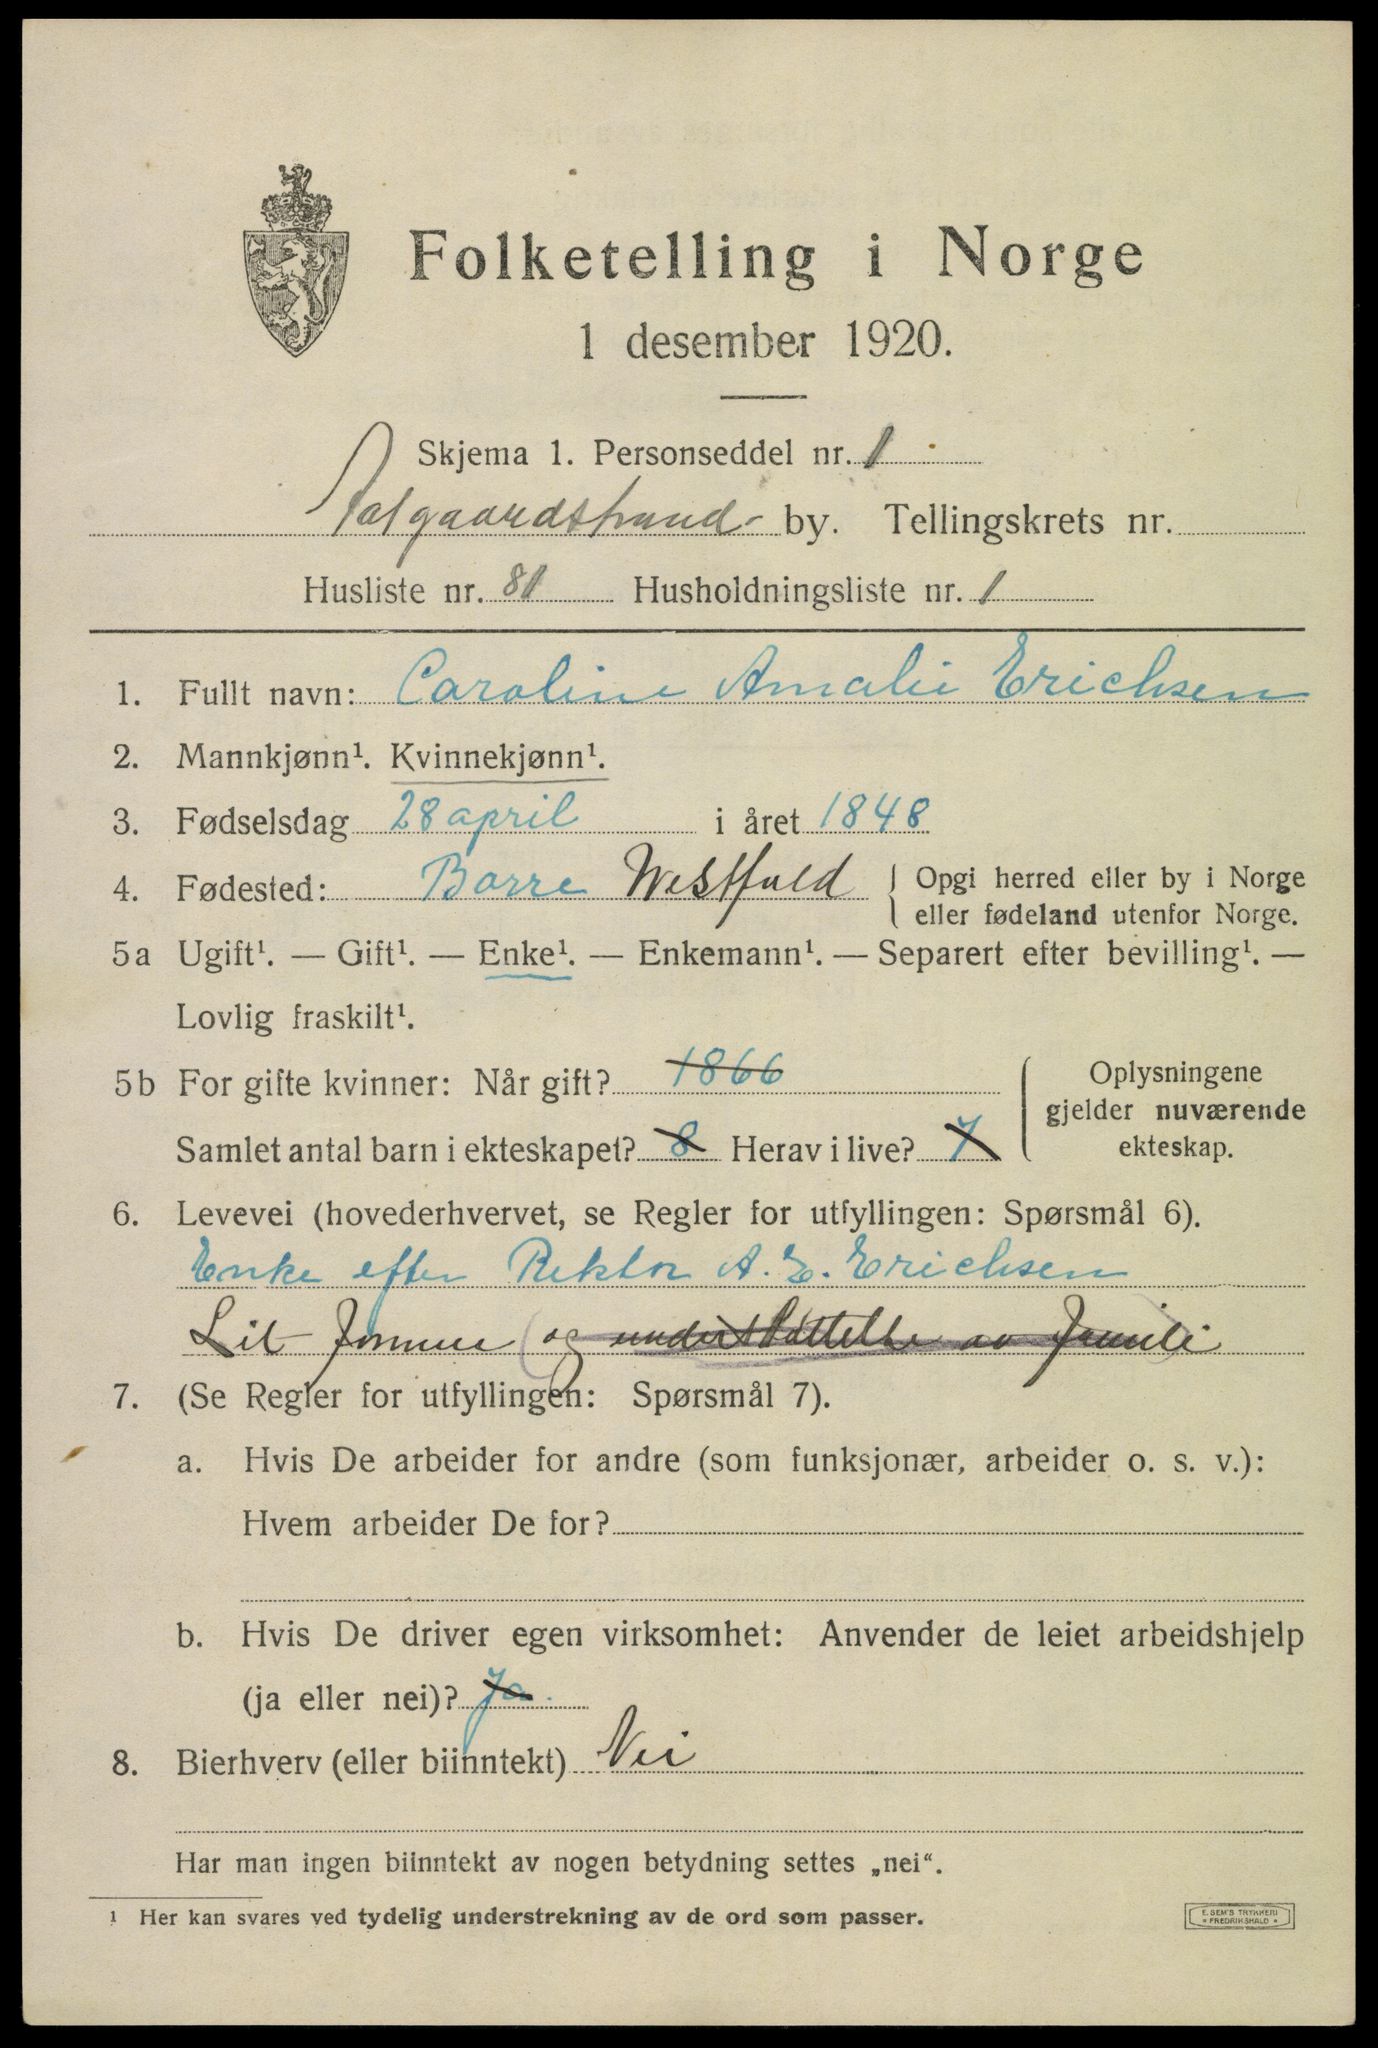 Folketelling i Norge
1 desember 1920.
Skjema 1. Personseddel nr. 1
Aasgaardstrand by. Tellingskrets nr.
Husliste nr. 81 Husholdningsliste nr. 1
1. Fullt navn: Caroline Amalie Erichsen
2. Mannkjønn¹. Kvinnekjønn¹.
3. Fødselsdag 28 april i året 1848
4. Fødested: Borre Westfold { Opgi herred eller by i Norge
eller fødeland utenfor Norge.
5a Ugift¹. — Gift¹. — Enke¹. — Enkemann¹. — Separert efter bevilling¹. —
Lovlig fraskilt¹.
5b For gifte kvinner: Når gift? 1866
Samlet antal barn i ekteskapet? 8 Herav i live? 7
Oplysningene
gjelder nuværende
ekteskap.
6. Levevei (hovederhvervet, se Regler for utfyllingen: Spørsmål 6).
Enke efter Rektor A. E. Erichsen
Lit Formue (og understøttelse av Familie
7. (Se Regler for utfyllingen: Spørsmål 7).
a. Hvis De arbeider for andre (som funksjonær, arbeider o. s. v.):
Hvem arbeider De for?
b. Hvis De driver egen virksomhet: Anvender de leiet arbeidshjelp
(ja eller nei)? Ja.
8. Bierhverv (eller biinntekt) Nei
Har man ingen biinntekt av nogen betydning settes „nei“.
¹ Her kan svares ved tydelig understrekning av de ord som passer.
E. SEM'S TRYKKERI
* FREDRIKSHALD *